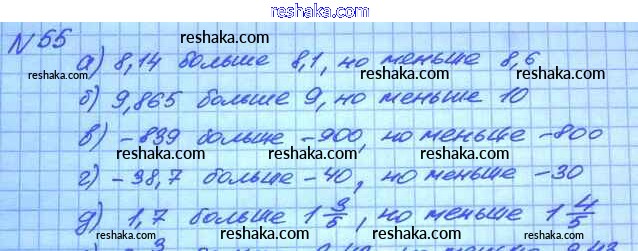 reshaka.com
N 55
reshaka.com
а) 8,14 больше 8,1, но меньше 8,6
reshaka.com reshaka.com
б) 9,865 больше 9, но меньше 10
reshaka.com
в) -839 больше -900, но меньше -800
reshaka.com reshaka.com
г) -38,7 больше -40, но меньше -30
reshaka.com reshaka.com
д) 1,7 больше 1 3/5, но меньше 1 4/5
reshaka.com